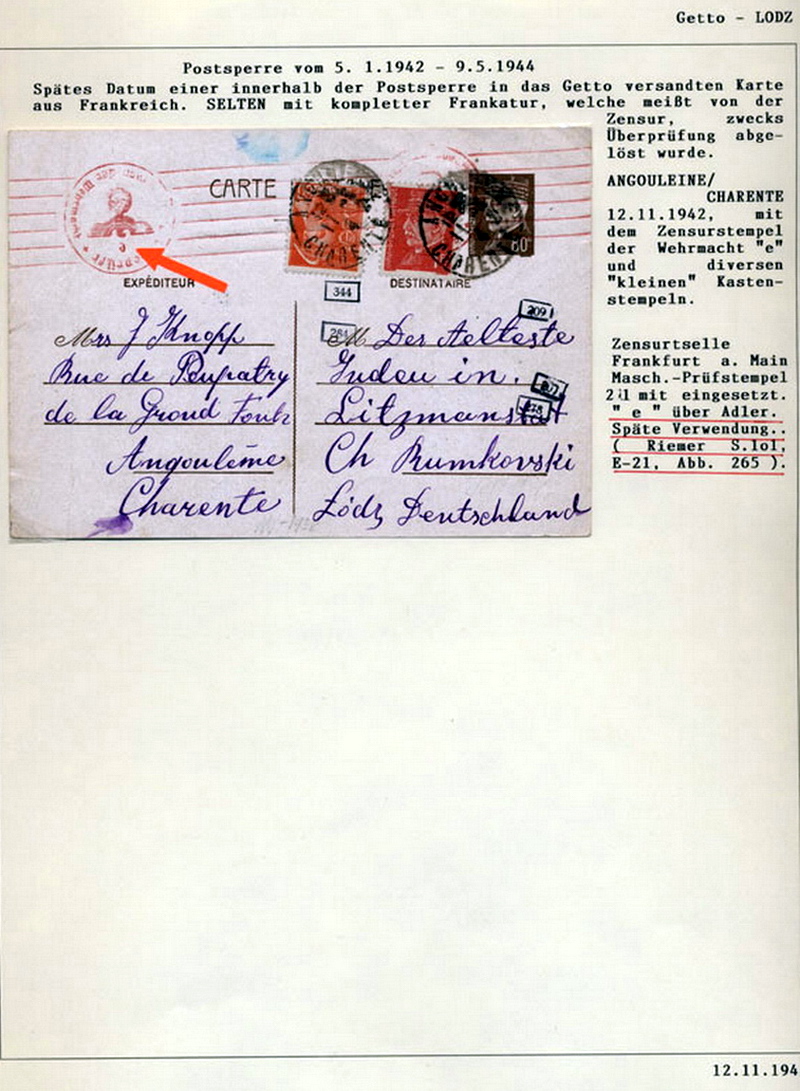 Getto - LODZ
Postsperre vom 5. 1.1942 - 9.5.1944
Spätes Datum einer innerhalb der Postsperre in das Getto versandten Karte
aus Frankreich. SELTEN mit kompletter Frankatur, welche meißt von der
Zensur, zwecks
Überprüfung abge-
löst wurde.
ANGOULEINE/
CHARENTE
12.11.1942, mit
dem Zensurstempel
der Wehrmacht "e"
und diversen
"kleinen" Kasten-
stempeln.
Zensurtselle
Frankfurt a. Main
Masch.-Prüfstempel
mit eingesetzt.
" e " über Adler.
Späte Verwendung..
( Riemer S.lol,
E-21, Abb. 265 ).
CARTE
CHARENTE
CHARENTE
80c
e
EXPÉDITEUR
Mrs J Knopp
Rue de
de la Grond
Angoulême
Charente
DESTINATAIRE
344
209
M. Der Aelteste
Juden in.
Litzmanstat
Ch Rumkovski
Lódz Deutschland
12.11.194